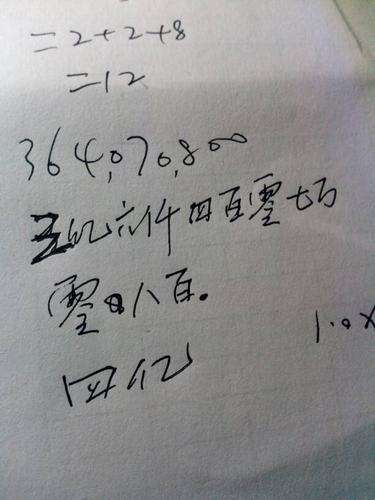 =2+2+8
=12
364,070,800
三亿六仟四百零七万
零八百。
1.0x
四亿